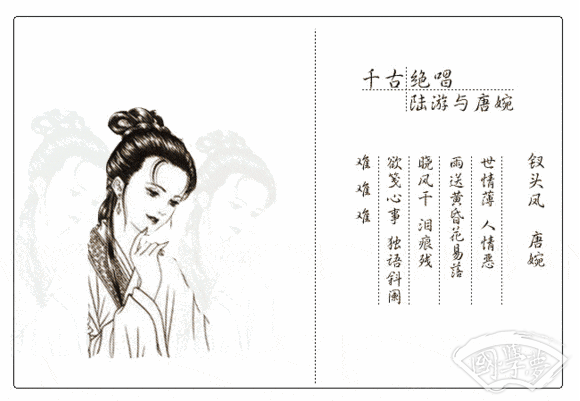 千古绝唱
陆游与唐婉
钗头凤 唐婉
世情薄 人情恶
雨送黄昏花易落
晓风干 泪痕残
欲笺心事 独语斜阑
难 难 难
國學夢